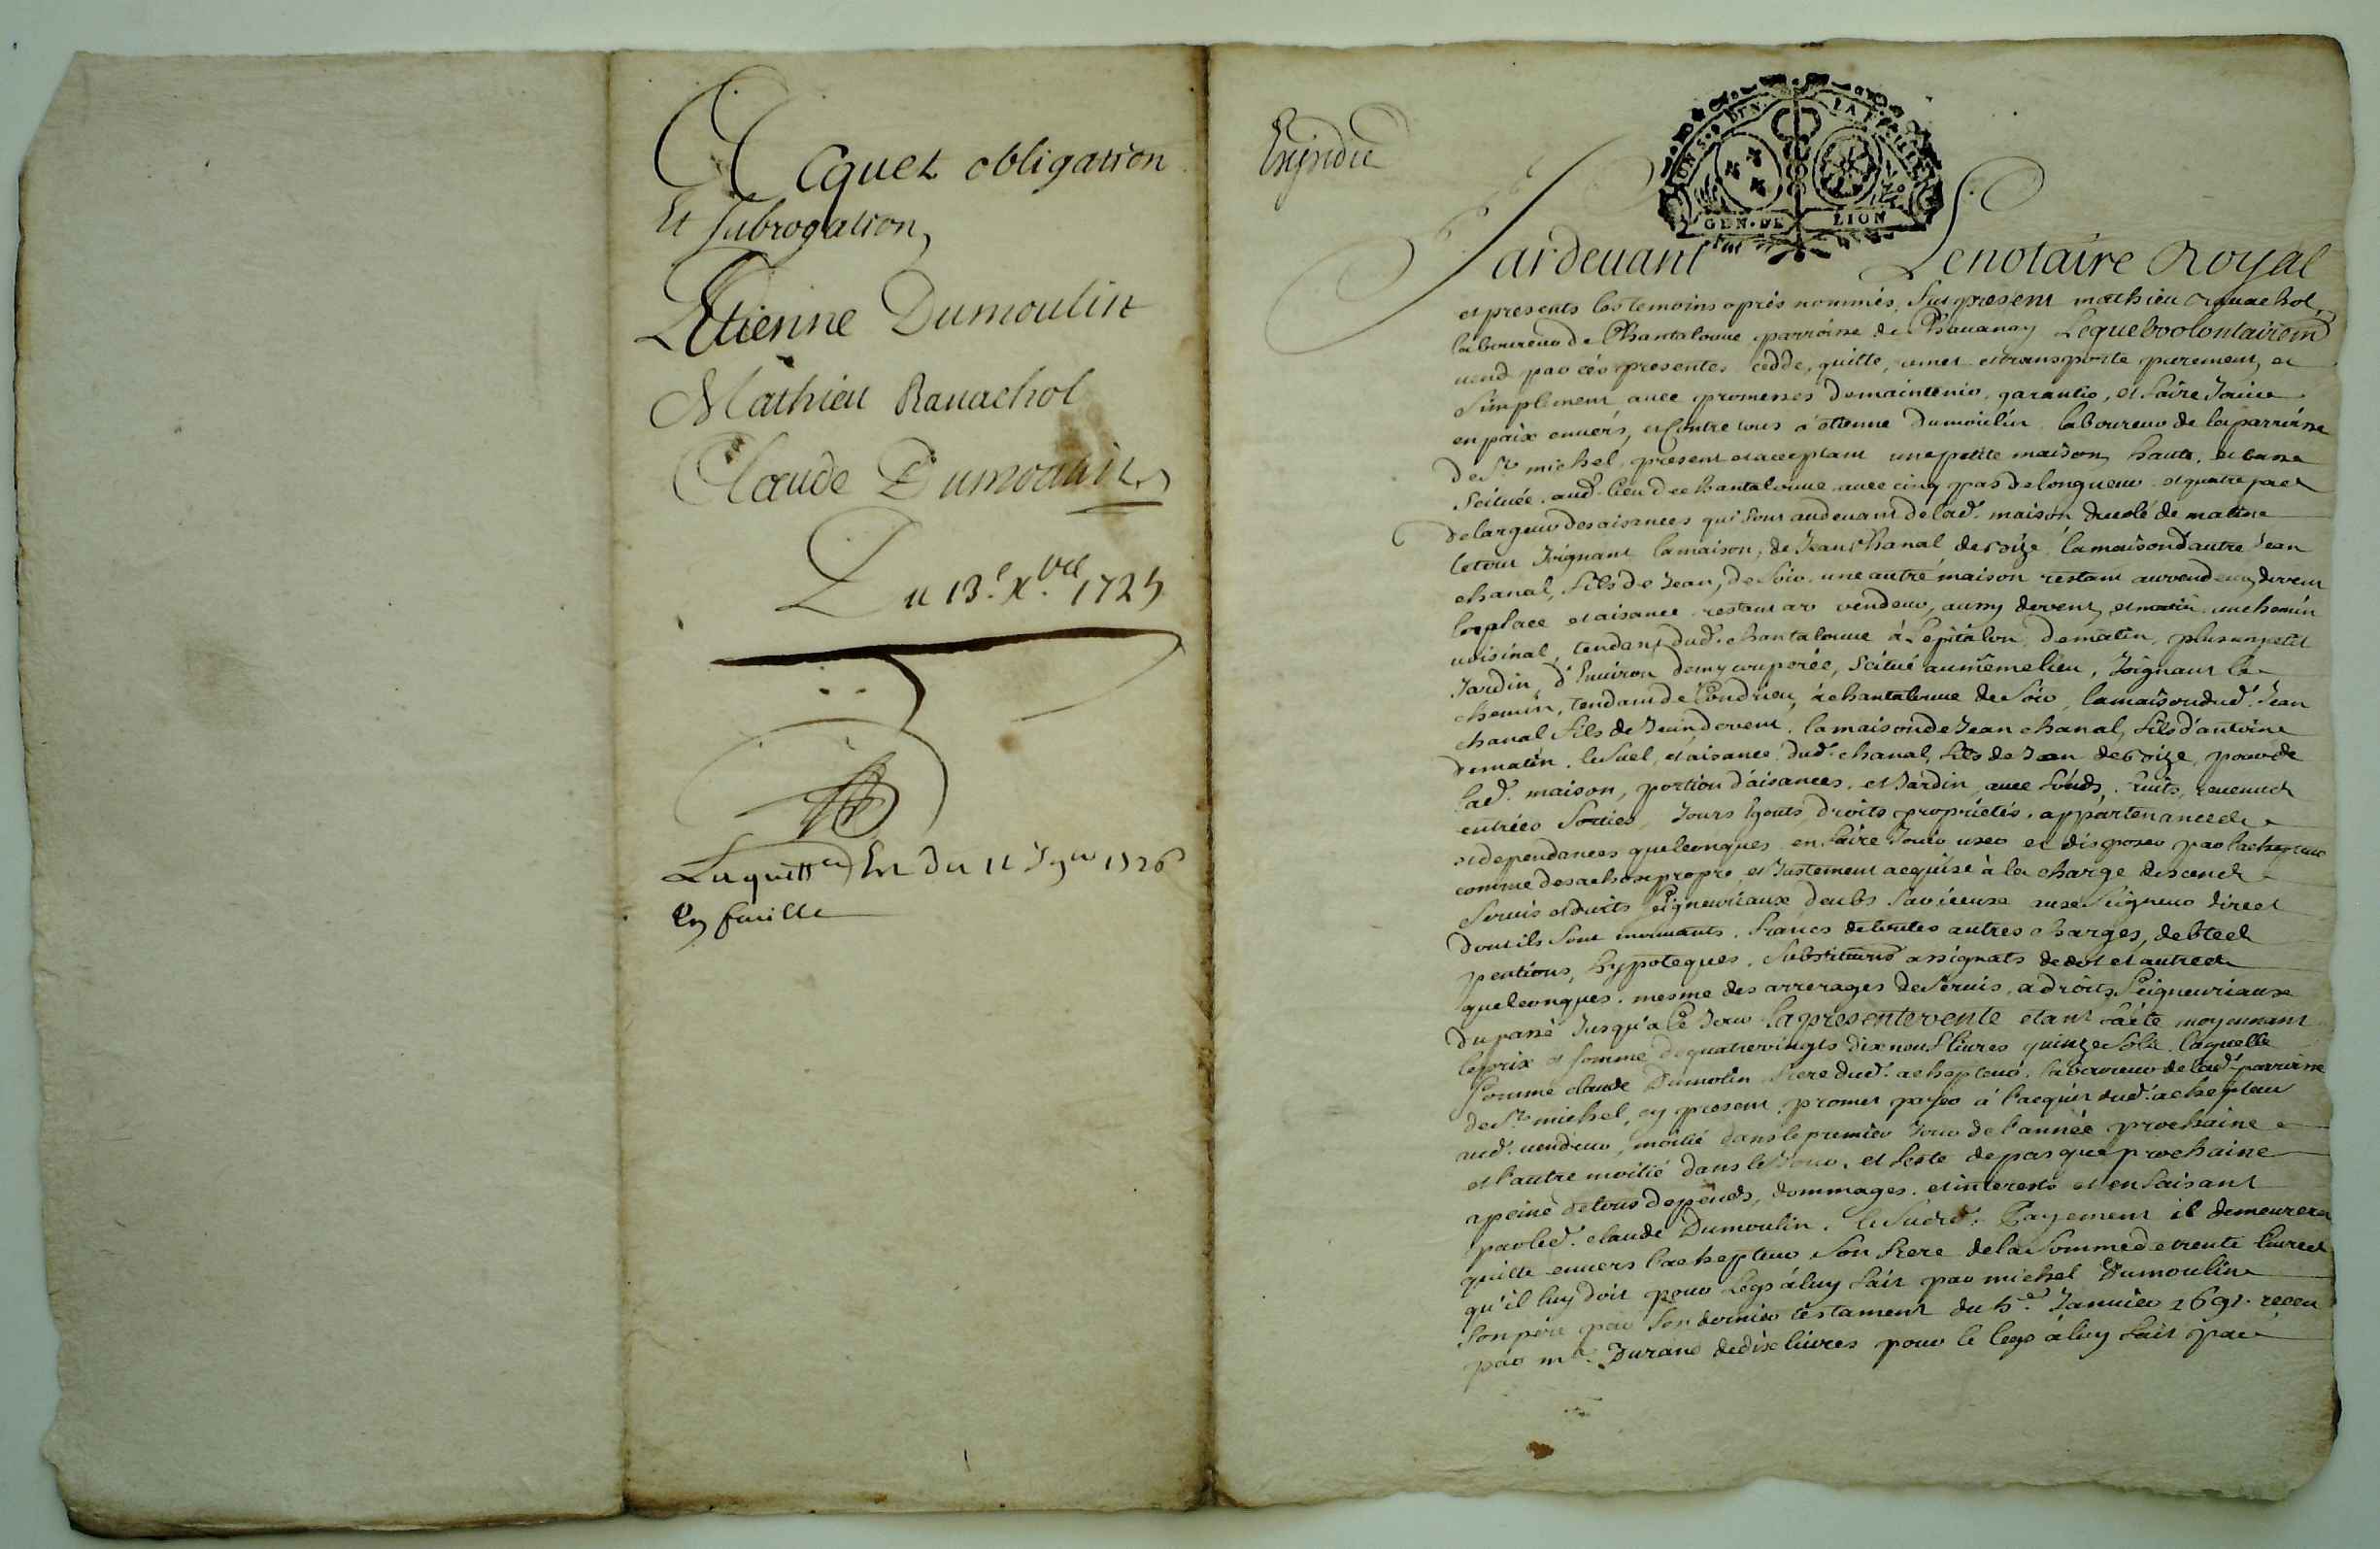 Acquet obligation
Et subrogation,
Etienne Dumoulin
Mathieu Ravachol
Claude Dumoulin
Du 13.e x.bre 1725
La quitt.ce Est du 11
En fueille
Expedié
GEN. DE LION
Pardevant Le notaire Royal
et presents les temoins après nommés, fut present mathieu Ravachol,
laboureur de Chantaloue parroisse de Chavanay Lequel volontairem.t
vend par cés presentes cedde, quitte, remet et transporte purement, et
simplement avec promesses de maintenir, garantir, et faire Jouir
en paix envers, et Contre tous à etienne Dumoulin laboureur de la parroisse
de S.t michel, present et acceptant une petite maison, haute, et basse
scituée aud. lieu de chantaloue avec cinq pas de longueur et quatre pas
de largeur des aisances qui sont au devant de lad. maison du coté de matin
le tout Joignant la maison, de Jean Chanal de bize, la maison d'autre Jean
chanal, fils de Jean, de soir, une autre maison restant au vendeur, de vent
la place et aisance restant au vendeur, aussy de vent, et matin un chemin
voisinal, tendant dud. chantaloue à de matin, plus un petit
Jardin, d'Environ demy couperée, scitué au même lieu, Joignant le
chemin, tendant de Condrieu, à chantaloue de soir, la maison dud. Jean
chanal fils de Jean, de vent, la maison de Jean chanal, fils d'antoine
de matin, le suel, et aisance dud. chanal, fils de Jean de bize, pour de
lad. maison, portion d'aisances, et Jardin, avec fonds, fruits, revenus
entrées sorties, Jours Egouts, droits proprietés, appartenances
et dependances quelconques en faire Jouir user et disposer par l'achepteur
comme de sa chose propre, et Justement acquise à la charge des cens
servis et droits seigneuriaux deubs aux seigneurs direct
dont ils sont mouvants, francs de toutes autres charges, debtes
pentions, hypoteques, substitutions assignats de dot et autres
quelconques, mesme des arrerages de servis, a droits seigneuriaux
du passé Jusqu'à Ce Jour La presente vente etant faite moyennant
le prix et somme de quatrevingts dix neuf livres quinze sols, laquelle
somme claude Dumolin frere dud. achepteur, laboureur de lad. parroisse
de S.t michel, cy present, promet payer à l'acquit dud. achepteur
aud. vendeur, moitié dans le premier Jour de l'année prochaine
et l'autre moitié dans le Jour, et feste de pasque prochaine
a peine de tous depends, dommages, et interests et en faisant
par led. claude Dumoulin, le susd. Payement il demeurera
quitte envers l'achepteur son frere de la somme de trente livres
qu'il luy doit pour Legs à luy fait par michel Dumoulin
son père par son dernier testament du Janvier 1691. receu
par m.e Durand de dix livres pour le legs à luy fait par